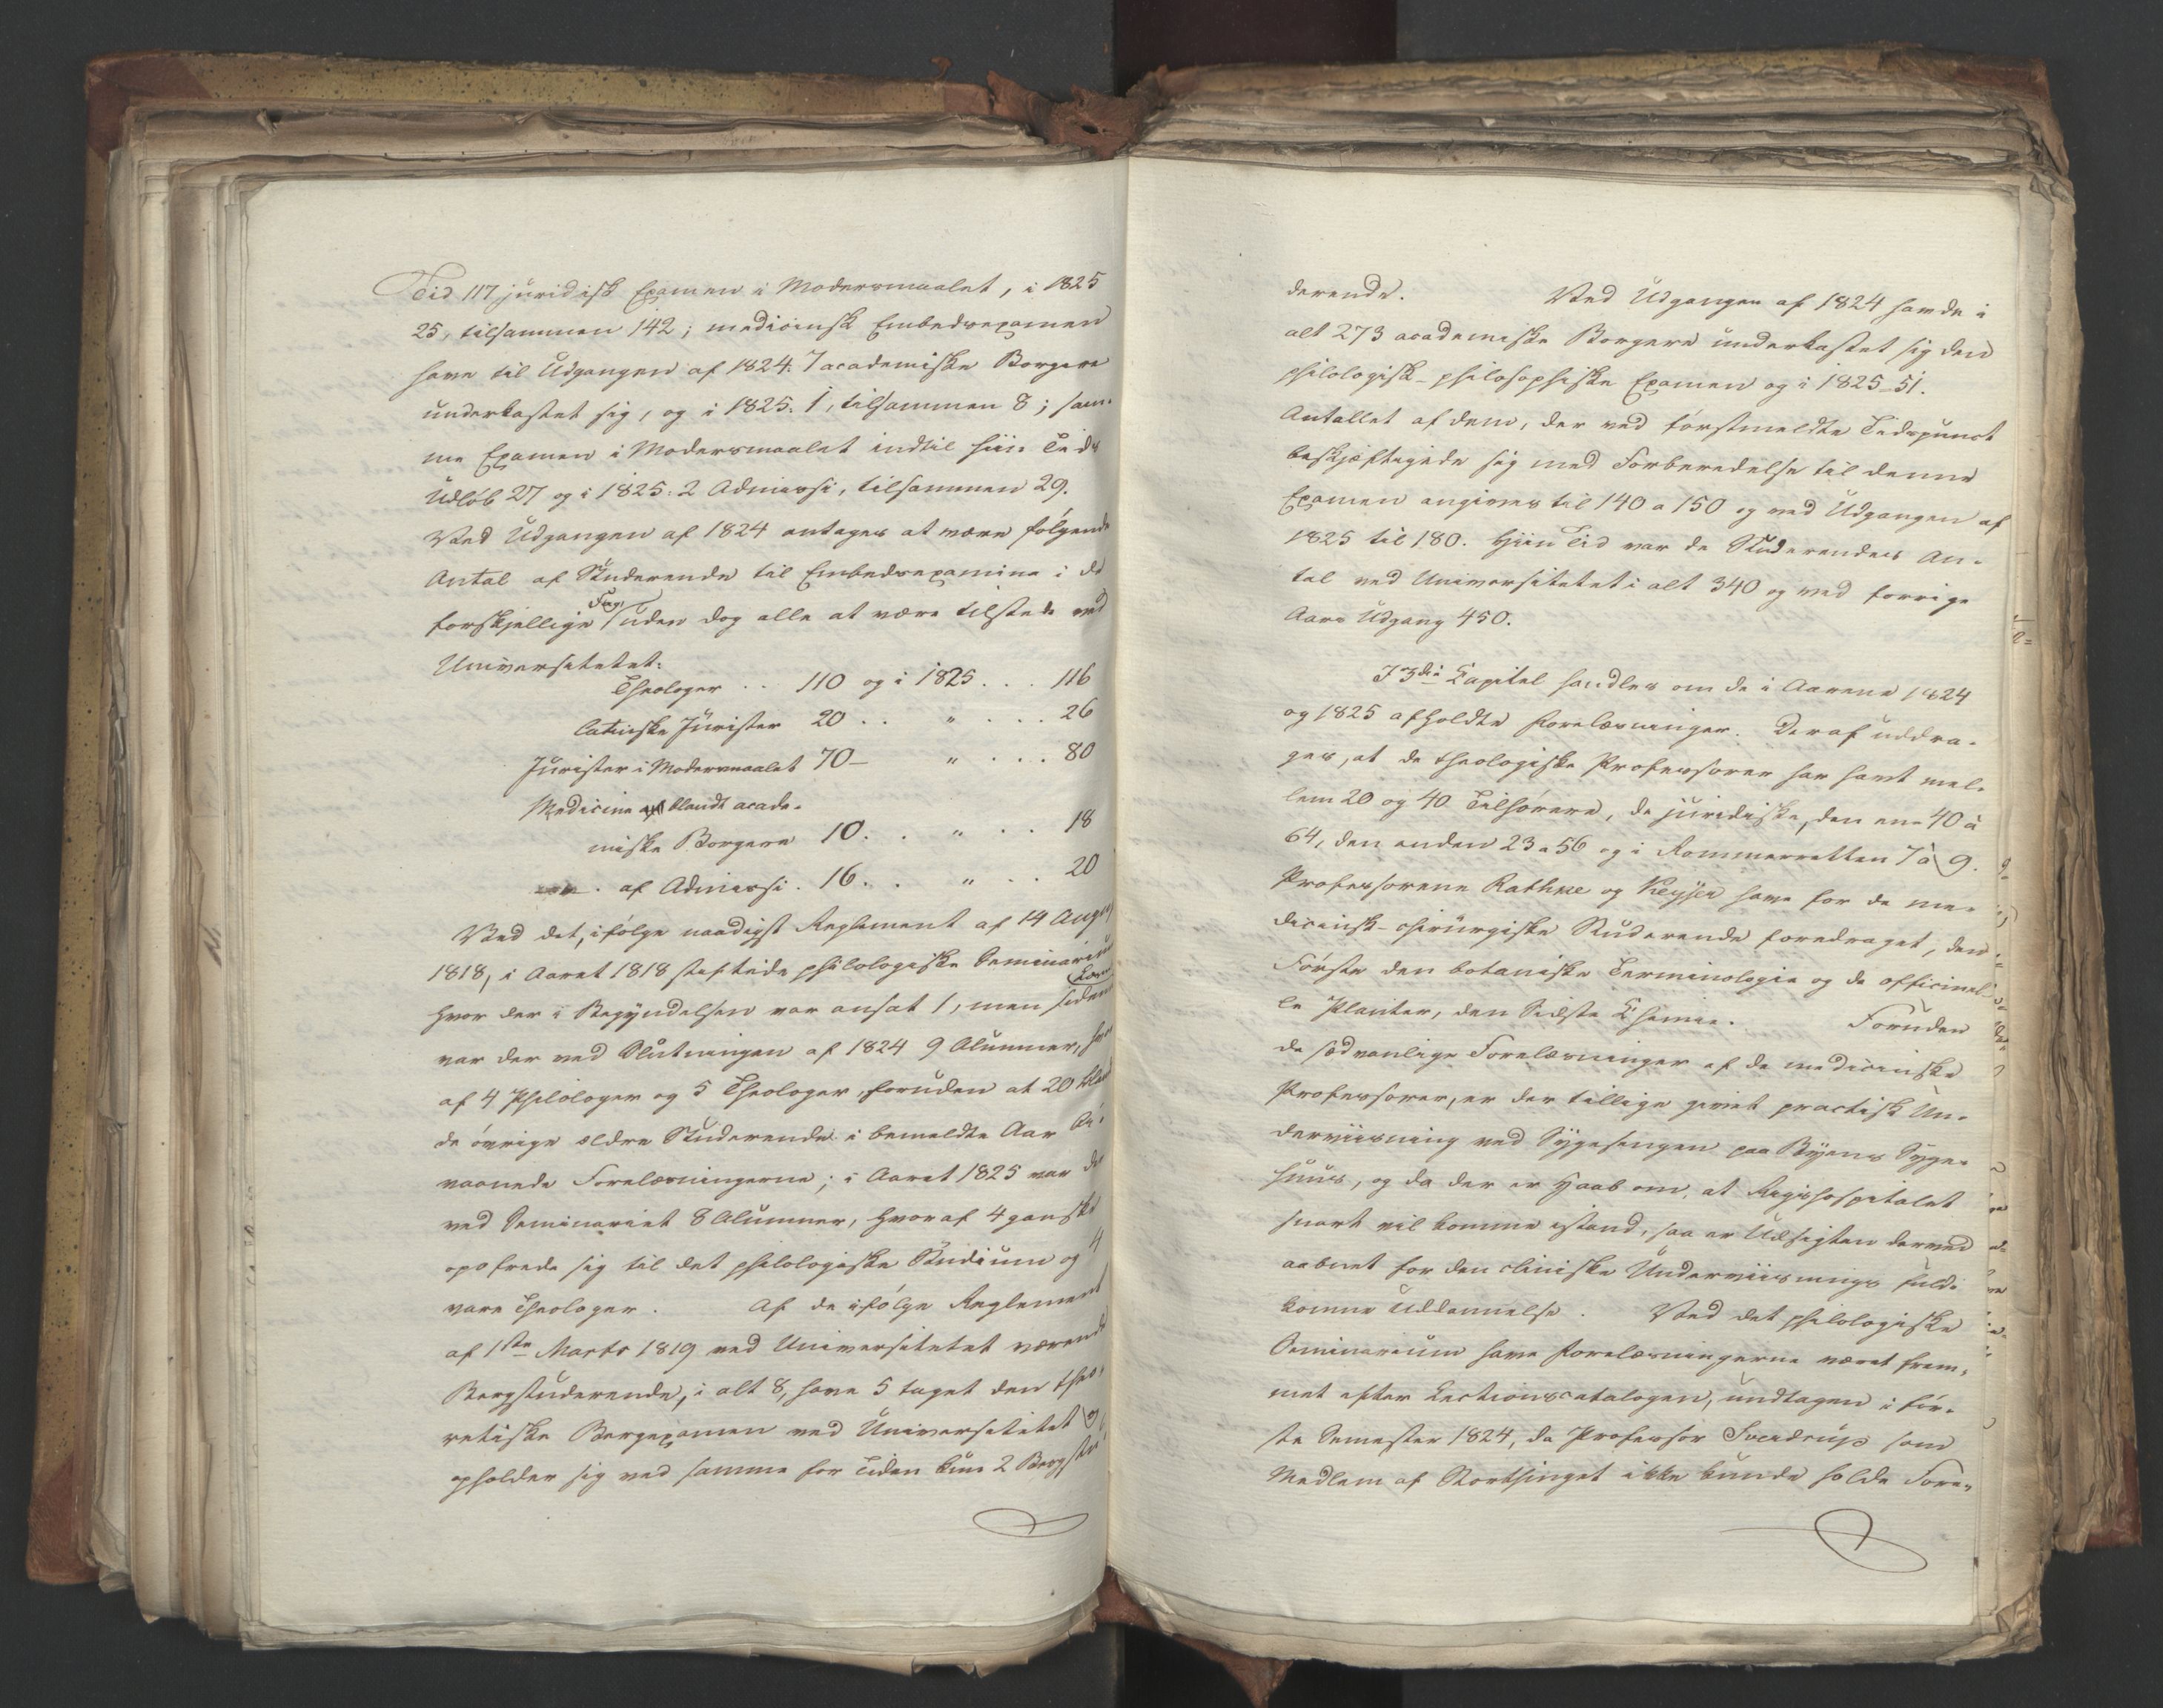 Tid 117 juridisk Examen i Modersmaalet, i 1825
25, tilsammen 142; medicinsk Embedsexamen
have til Udgangen af 1824: 7 academiske Borgere
underkastet sig, og i 1825: 1, tilsammen 8; sam-
me Examen i Modersmaalet indtil hiin Tids
Udløb 27 og i 1825: 2 Admissi, tilsammen 29.
Ved Udgangen af 1824 antages at være følgende
Antal af Studerende til Embedsexamina i de
forskjellige Fag, uden dog alle at være tilstede ved
Universitetet:
Theologer .. 110 og i 1825 ... 116
latinske Jurister 20 .. " .... 26
Jurister i Modersmaalet 70 – " .... 80
Medicine blandt acade-
miske Borgere 10 . . " . . 18
af Admissi . 16 . . " . . 20
Ved det, ifølge naadigst Reglement af 14 August
1818, i Aaret 1818 stiftede philologiske Seminarium
hvor der i Begyndelsen var ansat 1, men siden
var der ved Slutningen af 1824 9 Alumner, hvor
af 4 Philologer og 5 Theologer, foruden at 20 blandt
de øvrige ældre Studerende i bemeldte Aar bi-
vaanede Forelæsningerne; i Aaret 1825 var der
ved Seminariet 8 Alumner, hvoraf 4 ganske
opofrede sig til det philologiske Studium og 4
vare Theologer. Af de ifølge Reglement
af 1ste Marts 1819 ved Universitetet værende
Bergstuderende, i alt 8, have 5 taget den theo-
retiske Bergexamen ved Universitetet og
opholder sig ved samme for Tiden kun 2 Bergstu-
derende. Ved Udgangen af 1824 havde i
alt 273 academiske Borgere underkastet sig den
philologisk-philosophiske Examen og i 1825 – 51.
Antallet af dem, der ved førstmeldte Tidspunct
beskjæftigede sig med Forberedelse til denne
Examen angives til 140 a 150 og ved Udgangen af
1825 til 180. Hiin Tid var de Studerendes An-
tal ved Universitetet i alt 340 og ved forrige
Aars Udgang 450.
I 3die Capitel handles om de i Aarene 1824
og 1825 afholdte Forelæsninger. Deraf uddra-
ges, at de theologiske Professorer har havt mel-
lem 20 og 40 Tilhørere, de juridiske, den ene 40 à
64, den anden 23 a 56 og i Romerretten 7 à 9.
Professorene Rathke og Keyser have for de me-
dicinsk-chirurgiske Studerende foredraget, den
Første den botaniske Terminologie og de officinel-
le Planter, den Sidste Chemie. Foruden
de sædvanlige Forelæsninger af de medicinske
Professorer, er der tillige givet practisk Un-
derviisning ved Sygesengen paa Byens Syge-
huus, og da der er Haab om, at Rigshospitalet
snart vil komme istand, saa er Udsigten derved
aabnet for den cliniske Underviisnings fuld-
komne Uddannelse. Ved det philologiske
Seminarium have Forelæsningerne været frem-
met efter Lectionscatalogen, undtagen i før-
ste Semester 1824, da Professor Sverdrup som
Medlem af Storthinget ikke kunde holde Fore-